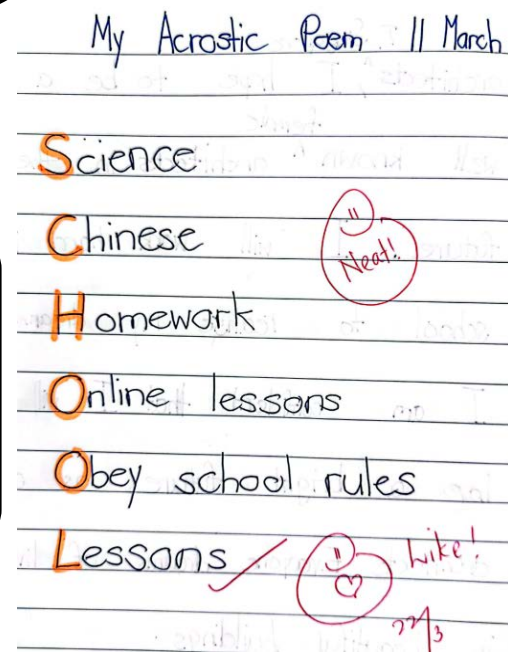 My Acrostic Poem 11 March
Science
Chinese
Neat!
Homework
Online lessons
Obey school rules
Lessons
Like!
22/3